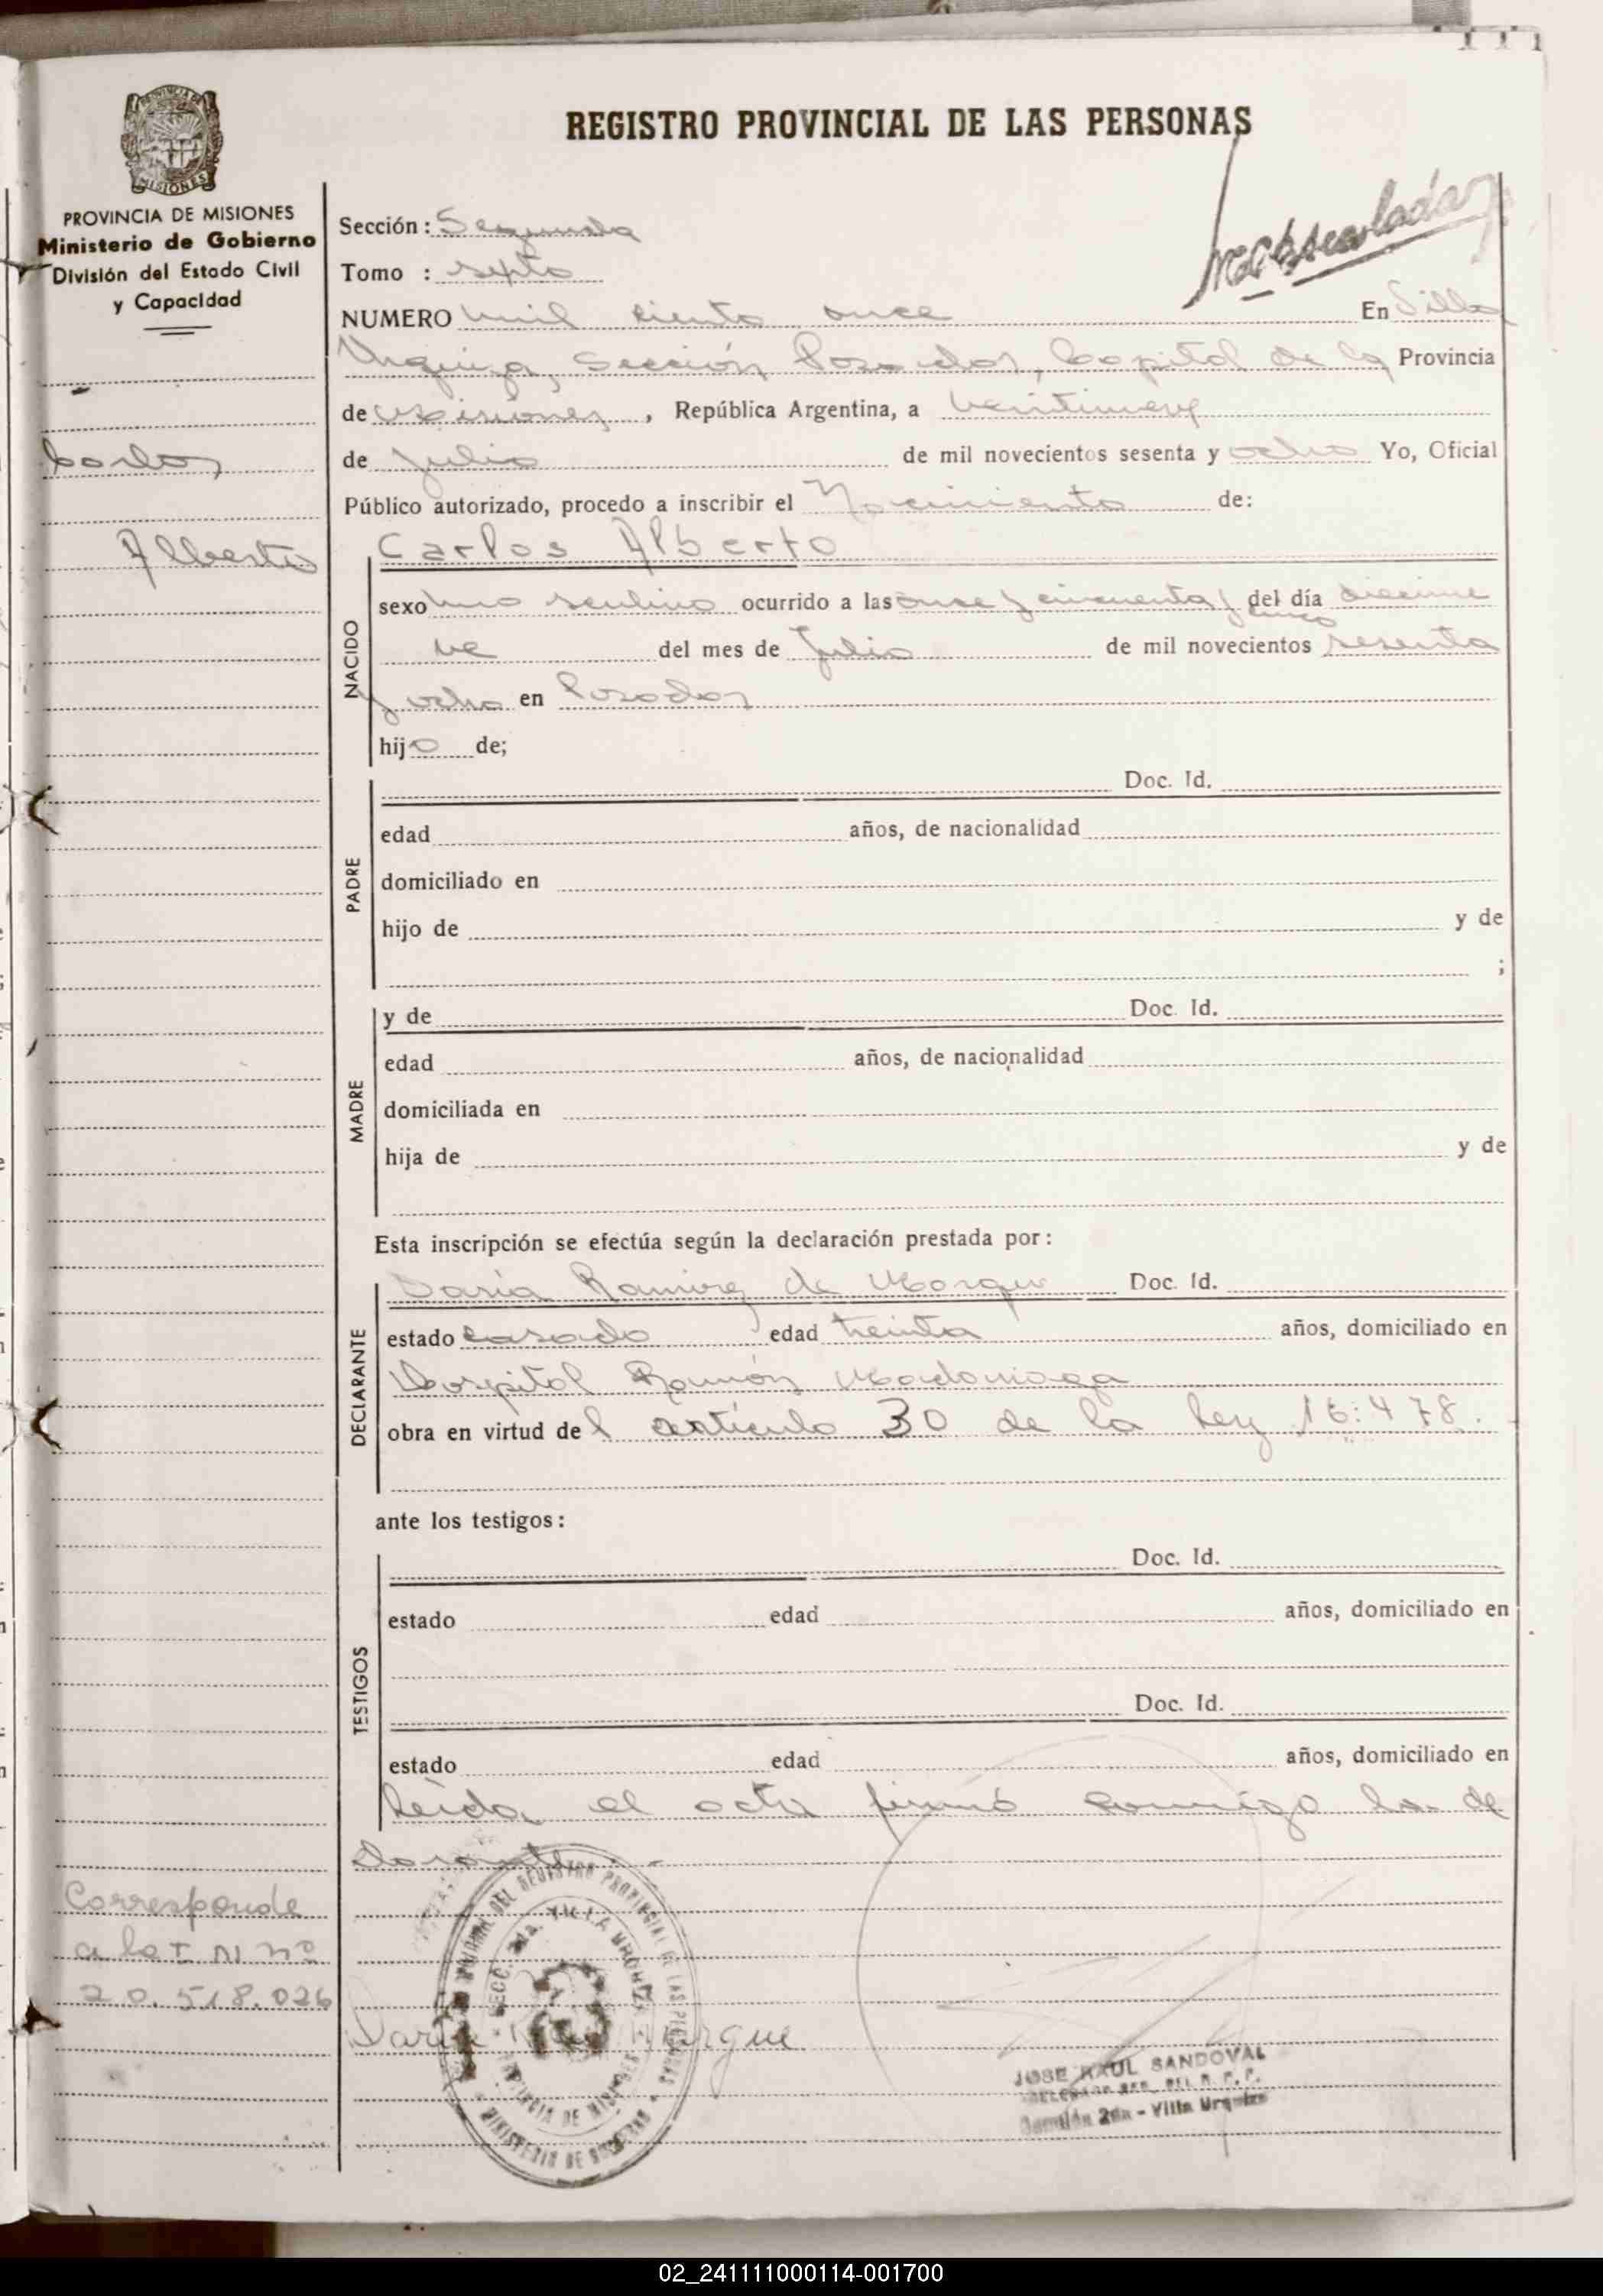 REGISTRO PROVINCIAL DE LAS PERSONAS
PROVINCIA DE MISIONES
Ministerio de Gobierno
División del Estado Civil
y Capacidad
Carlos
Alberto
Corresponde
a la I N nº
20.518.026
Sección: Segunda
Tomo :
NUMERO mil ciento once En Villa
Urquiza, Sección Posadas, Capital de la Provincia
de Misiones, República Argentina, a veintinueve
de Julio de mil novecientos sesenta y ocho Yo, Oficial
Público autorizado, procedo a inscribir el Nacimiento de:
NACIDO
Carlos Alberto
sexo masculino ocurrido a las once y cincuenta y cinco del día diecinue
ve del mes de Julio de mil novecientos sesenta
y ocho en Posadas
hijo de;
PADRE
Doc. Id.
edad años, de nacionalidad
domiciliado en
hijo de y de
;
MADRE
y de Doc. Id.
edad años, de nacionalidad
domiciliada en
hija de y de
Esta inscripción se efectúa según la declaración prestada por:
DECLARANTE
Daria Ramirez de Doc. Id.
estado casado edad treinta años, domiciliado en
Hospital Ramón Madariaga
obra en virtud del artículo 30 de la ley 16.478.
ante los testigos:
TESTIGOS
Doc. Id.
estado edad años, domiciliado en
Doc. Id.
estado edad años, domiciliado en
Leída el acta firmó conmigo la de
clarante
JOSE RAUL SANDOVAL
Sección 2da - Villa Urquiza
02_241111000114-001700